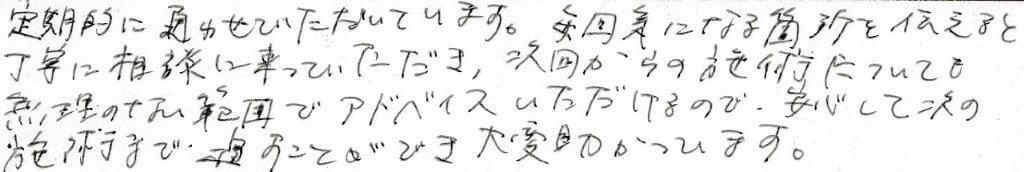 定期的に通わせていただいています。毎回気になる箇所を伝えると
丁寧に相談に乗っていただき、次回からの施術についても
無理のない範囲でアドバイスいただけるので、安心して次の
施術まで過すことができ大変助かっています。